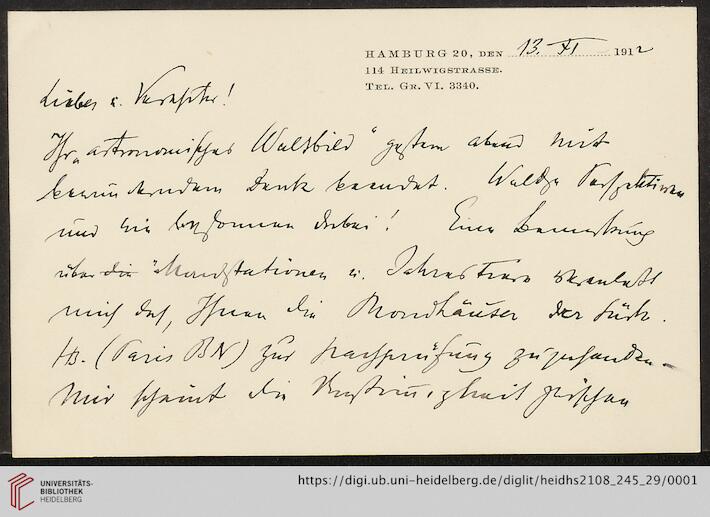 HAMBURG 20, DEN 13. XI 1912
114 HEILWIGSTRASSE.
TEL. GR. VI. 3340.
Lieber u. Verehrter!
Ihr „astronomisches Weltbild“ gestern abend mit
bewunderndem Dank beendet. Welche Perspektiven
und wie besonnen dabei! Eine Bemerkung
über die Mondstationen u. veranlaßt
mich dazu, Ihnen die Mondhäuser der türk.
Hs. (Paris BN) zur Nachprüfung zuzusenden.
Mir scheint die zwischen
UNIVERSITÄTS-
BIBLIOTHEK
HEIDELBERG
https://digi.ub.uni-heidelberg.de/diglit/heidhs2108_245_29/0001